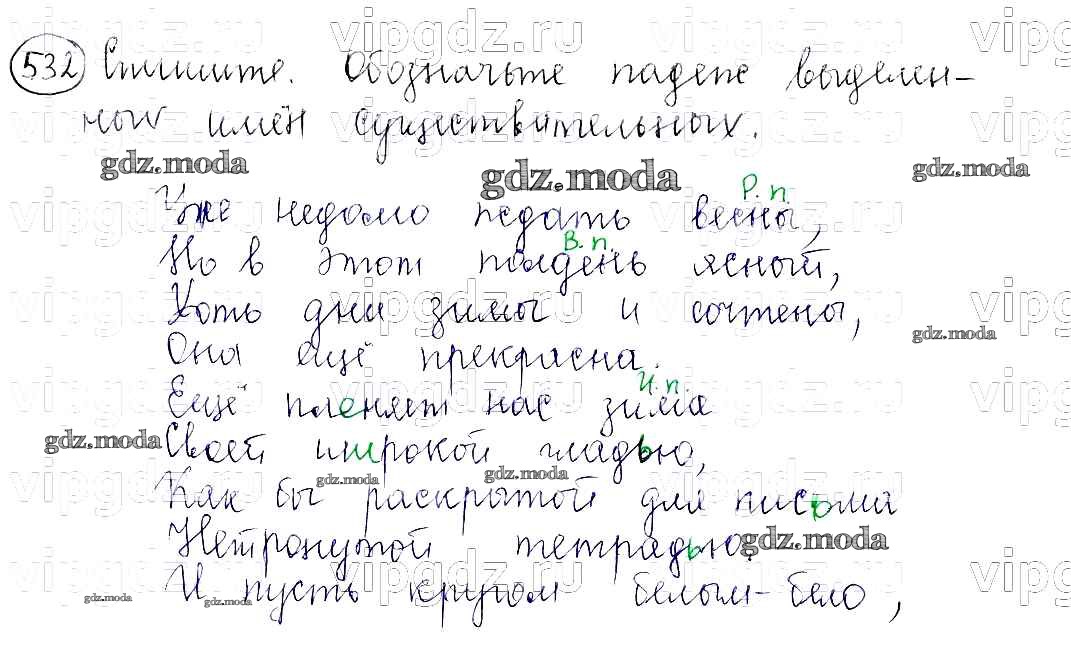 532 Спишите. Обозначьте падеж выделен-
ных имён существительных.
Р. п.
Уже недолго ждать весны,
В. п.
Но в этот полдень ясный,
Хоть дни зимы и сочтены,
Она ещё прекрасна.
И. п.
Ещё пленяет нас зима
Своей широкой гладью,
Как бы раскрытой для письма
Нетронутой тетрадью.
И пусть кругом белым-бело,
vipgdz.ru
gdz.moda